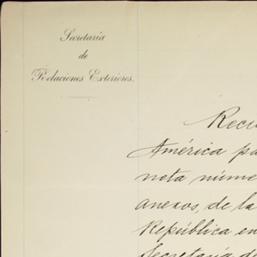 Secretaría
de
Relaciones Exteriores.
Reci
América pa
nota núme
anexos, de la
República en
Secretaría de